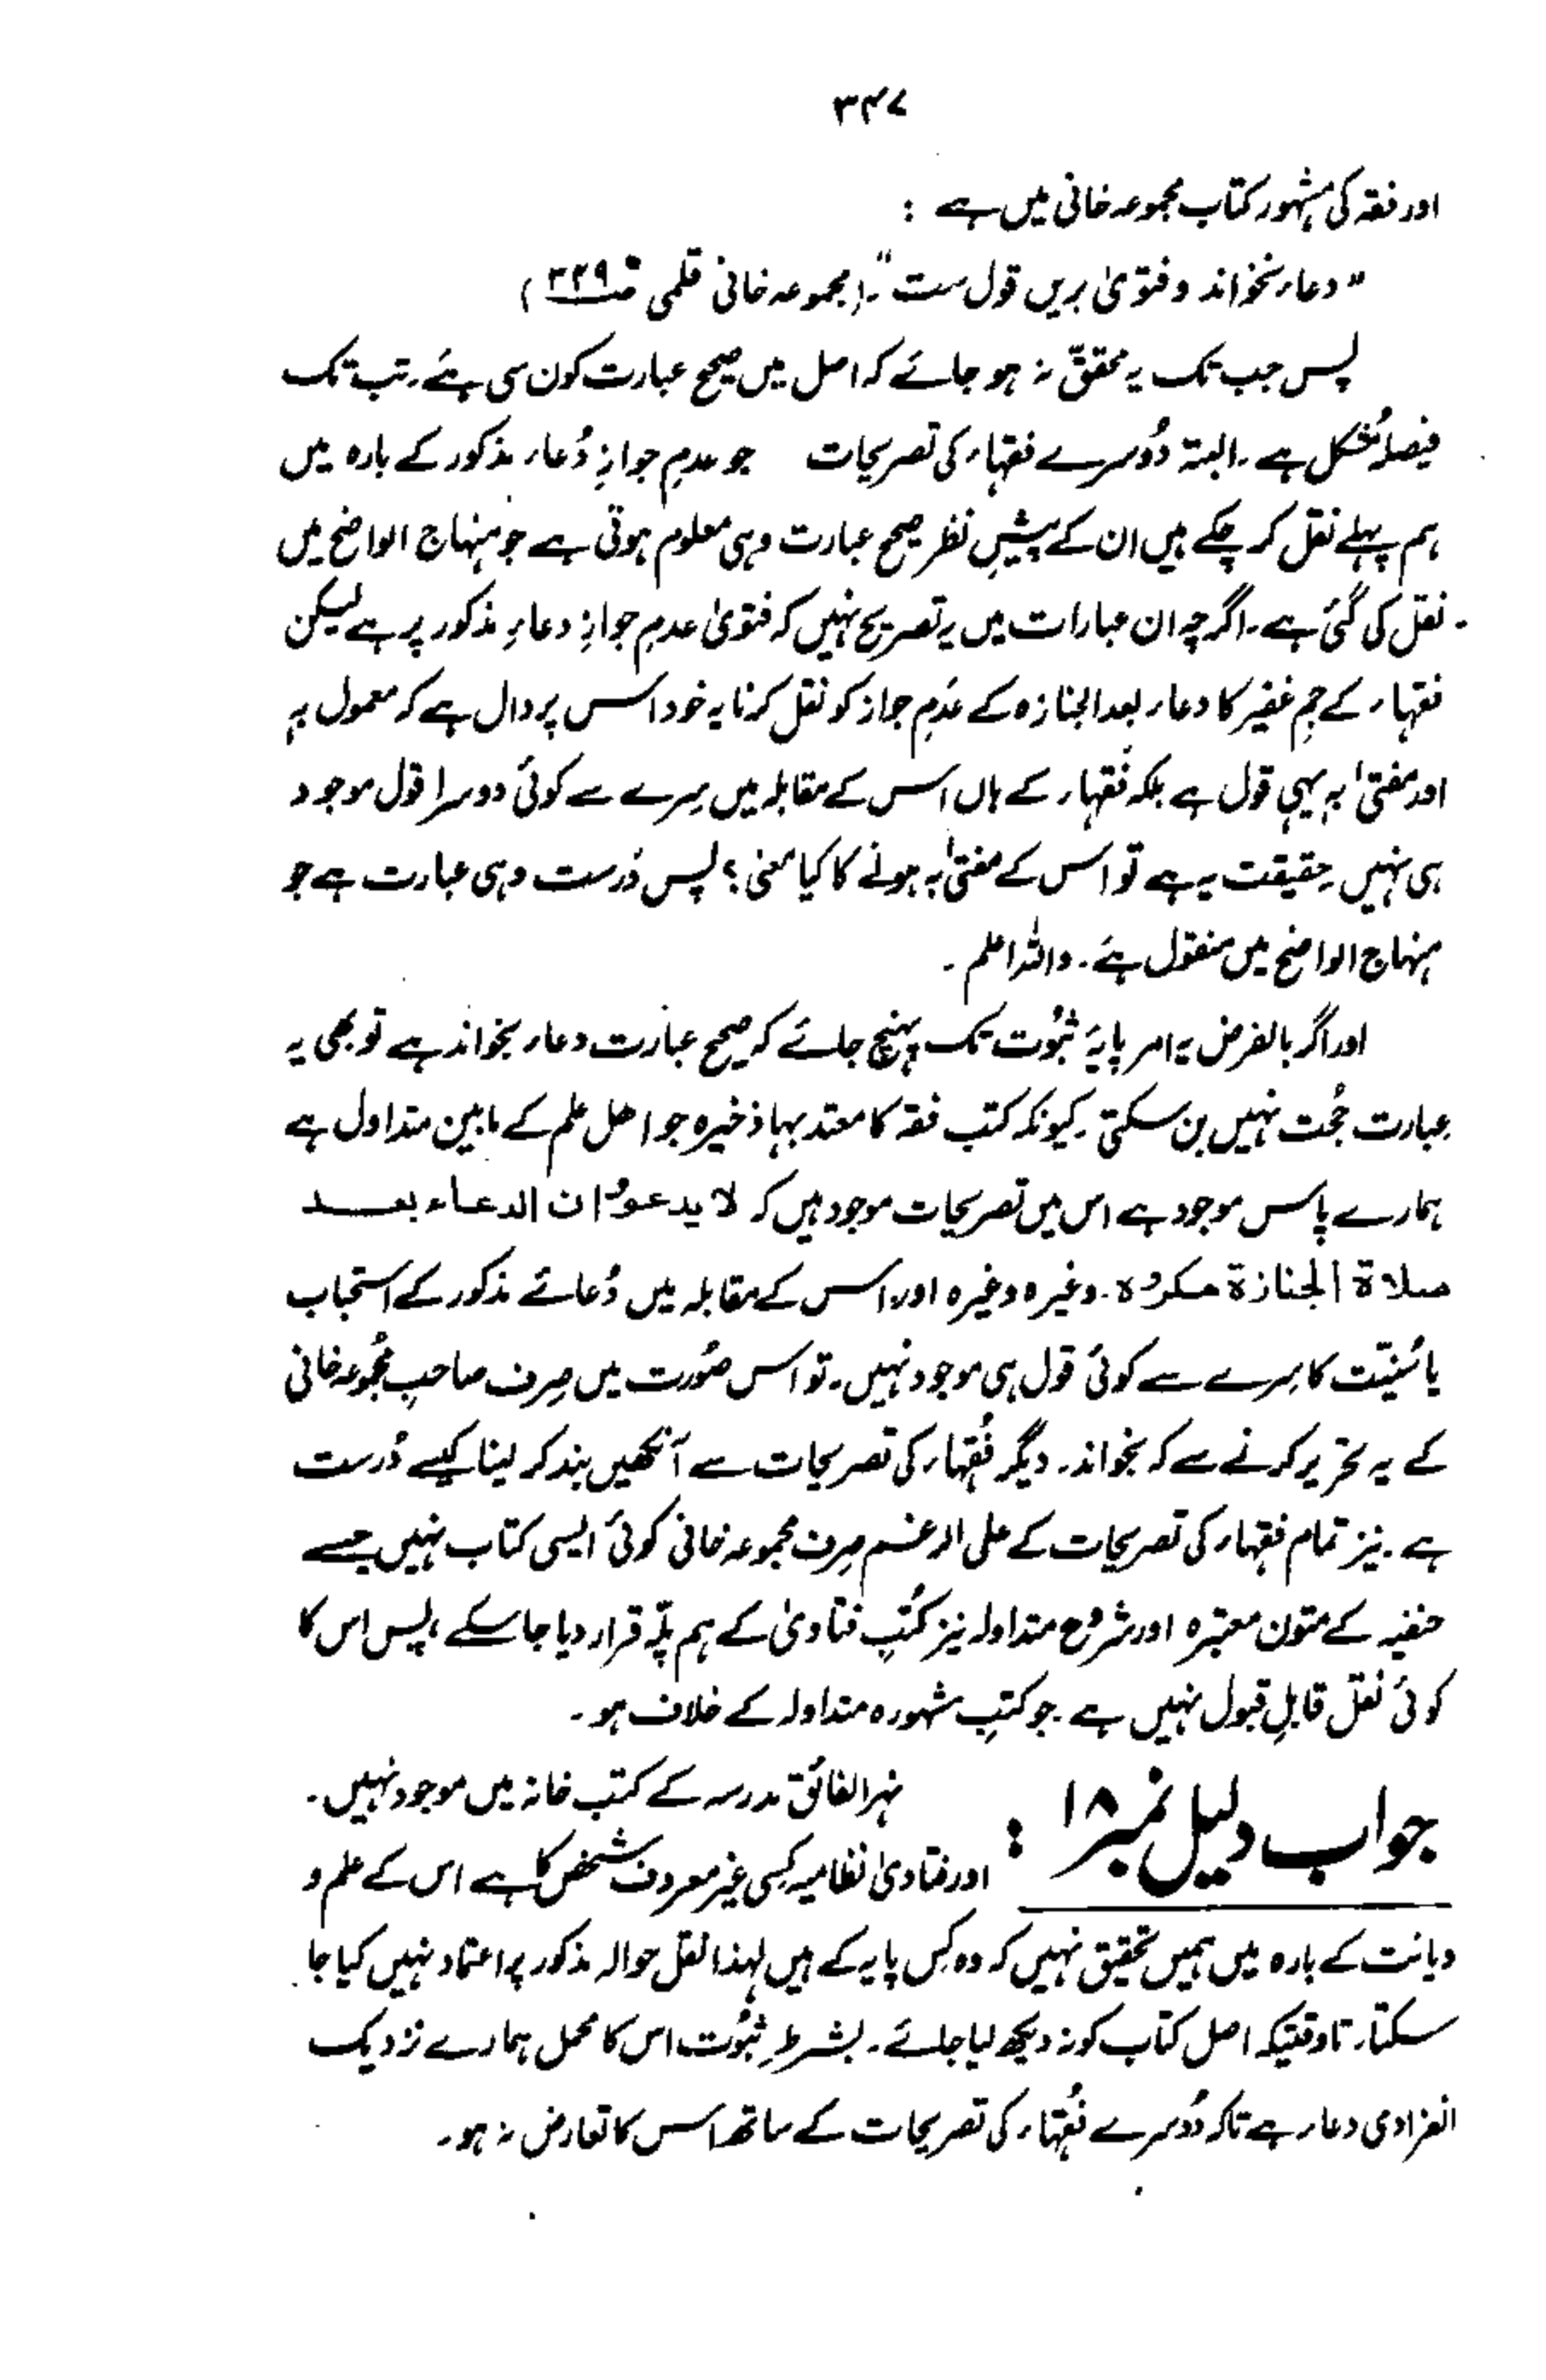 ۳۴۷
اور فقہ کی مشہور کتاب مجموعہ خانی میں ہے :
"دعاء نخواند و فتویٰ بریں قول ست"۔ (مجموعہ خانی قلمی ص۳۲۹)
پس جب تک یہ محقق نہ ہو جائے کہ اصل میں صحیح عبارت کون سی ہے۔ تب تک
فیصلہ مُشکل ہے۔ البتہ دُوسرے فقہاء کی تصریحات جو عدمِ جوازِ دُعاء مذکور کے بارہ میں
ہم پہلے نقل کر چکے ہیں ان کے پیشِ نظر صحیح عبارت وہی معلوم ہوتی ہے جو منہاج الواضح میں
نقل کی گئی ہے۔ اگرچہ ان عبارات میں یہ تصریح نہیں کہ فتویٰ عدمِ جوازِ دعاءِ مذکور پر ہے لیکن
فقہاء کے جمِ غفیر کا دعاء بعد الجنازہ کے عدَمِ جواز کو نقل کرنا یہ خود اس پر دال ہے کہ معمول بہٖ
اور مفتیٰ بہٖ یہی قول ہے بلکہ فُقہاء کے ہاں اس کے مقابلہ میں سِرے سے کوئی دوسرا قول موجود
ہی نہیں۔ حقیقت یہ ہے تو اس کے مفتیٰ بہ ہونے کا کیا معنی؟ پس دُرست وہی عبارت ہے جو
منہاج الواضح میں منقول ہے۔ واللہ اعلم۔
اور اگر بالفرض یہ امر پایۂ ثبُوت تک پہنچ جائے کہ صحیح عبارت دعاء بخواند ہے تو بھی یہ
عبارت حُجت نہیں بن سکتی۔ کیونکہ کتب فقہ کا معتد بہا ذخیرہ جو اھل علم کے مابین متداول ہے
ہمارے پاس موجود ہے اس میں تصریحات موجود ہیں کہ لا یدعوا ان الدعاء بعد
صلاة الجنازة مکروہ۔ وغیرہ وغیرہ اور اس کے مقابلہ میں دُعائے مذکور کے استحباب
یا سُنیّت کا سِرے سے کوئی قول ہی موجود نہیں۔ تو اس صُورت میں صِرف صاحبِ مجُموعہ خانی
کے یہ تحریر کرنے سے کہ بخواند۔ دیگر فُقہاء کی تصریحات سے آنکھیں بند کر لینا کیسے دُرست
ہے۔ نیز تمام فقہاء کی تصریحات کے علی الرغم صِرف مجموعہ خانی کوئی ایسی کتاب نہیں جسے
حنفیہ کے متون معتبرہ اور شروح متداولہ نیز کُتبِ فتاویٰ کے ہم پلّہ قرار دیا جا سکے، پس اس کا
کوئی نقل قابلِ قبول نہیں ہے جو کتبِ مشہورہ متداولہ کے خلاف ہو۔
جواب دلیل نمبر ۱۸ : نہر الفائق مدرسہ کے کتب خانہ میں موجود نہیں۔
اور فتاویٰ نظامیہ کسی غیر معروف شخص کا ہے اس کے علم و
دیانت کے بارہ میں ہمیں تحقیق نہیں کہ وہ کِس پایہ کے ہیں لہذا نقل حوالہ مذکور پر اعتماد نہیں کیا جا
سکتا۔ تاوقتیکہ اصل کتاب کو نہ دیکھ لیا جائے۔ بشرطِ ثبُوت اس کا محمل ہمارے نزدیک
انفرادی دعاء ہے تاکہ دُوسرے فُقہاء کی تصریحات کے ساتھ اس کا تعارض نہ ہو۔